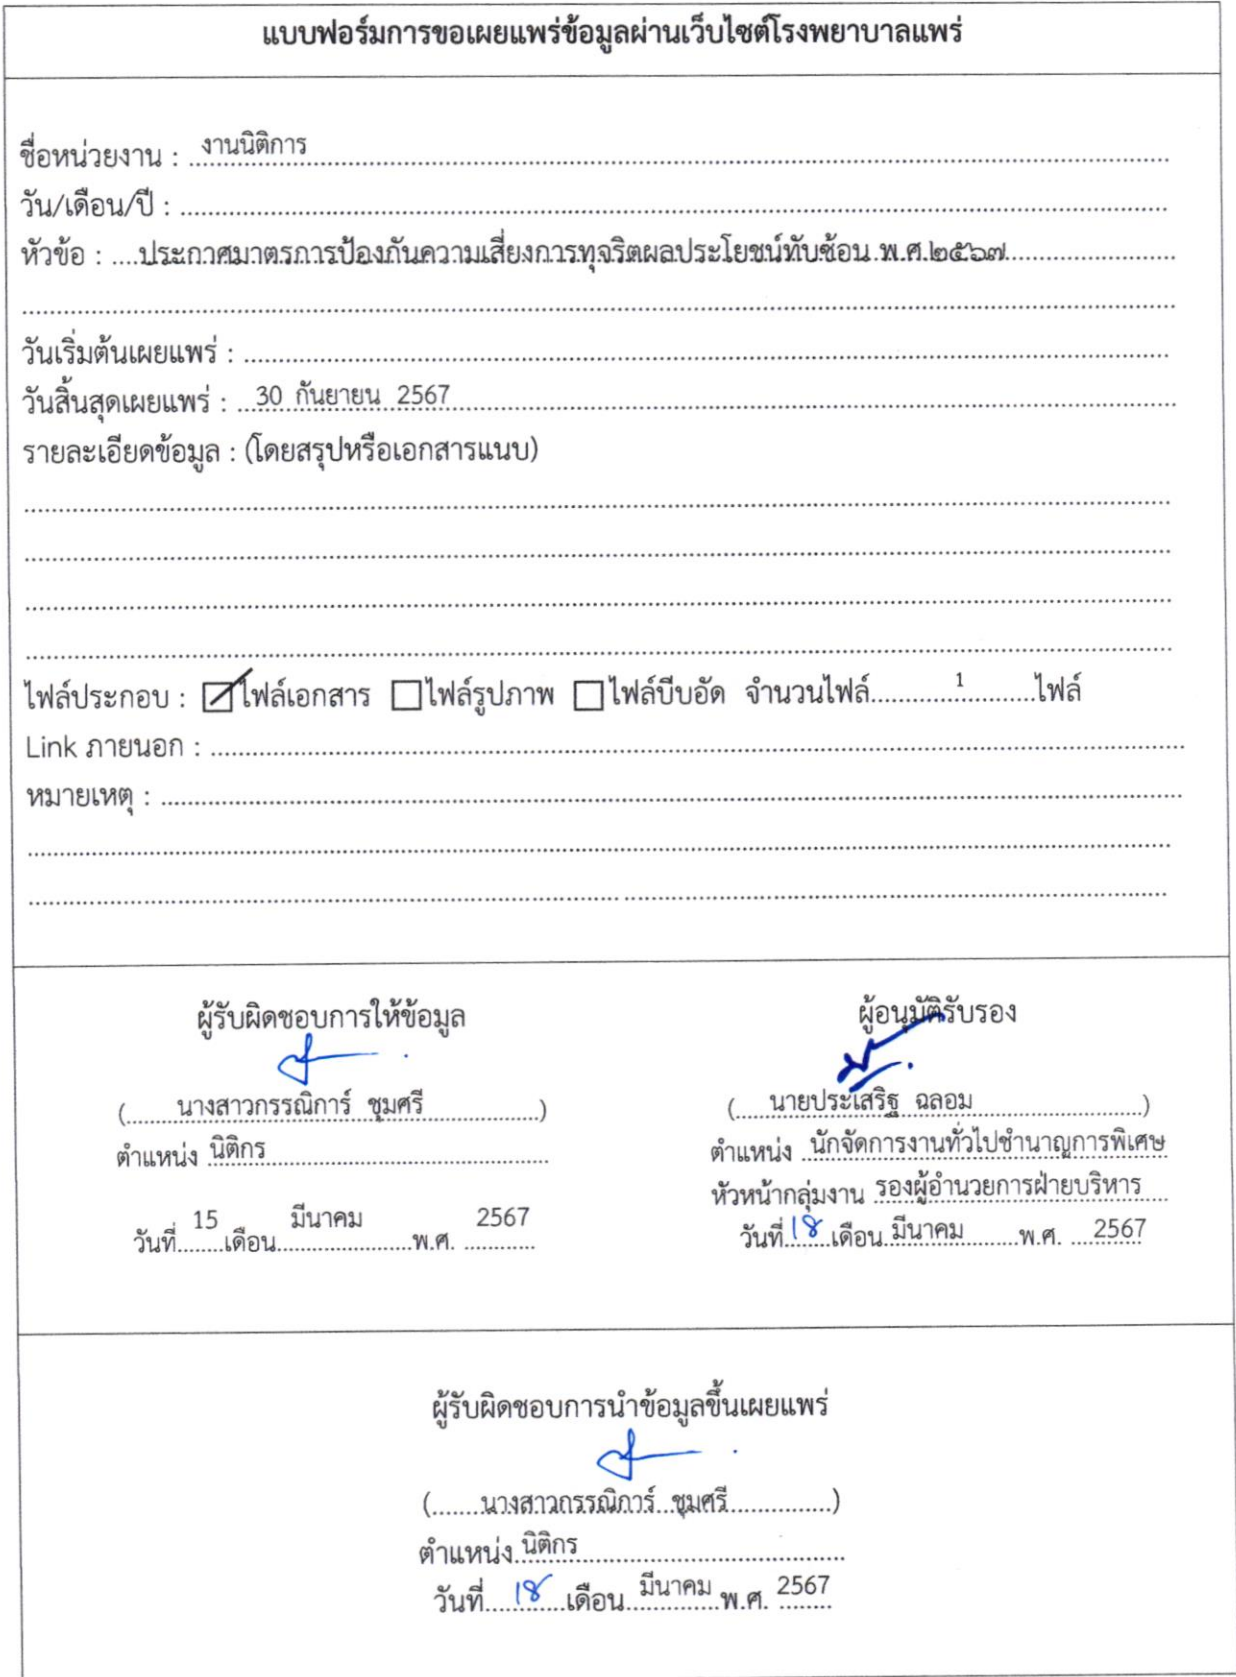 แบบฟอร์มการขอเผยแพร่ข้อมูลผ่านเว็บไซต์โรงพยาบาลแพร่
ชื่อหน่วยงาน : งานนิติการ
วัน/เดือน/ปี :
หัวข้อ : ประกาศมาตรการป้องกันความเสี่ยงการทุจริตผลประโยชน์ทับซ้อน พ.ศ.๒๕๖๗
วันเริ่มต้นเผยแพร่ :
วันสิ้นสุดเผยแพร่ : 30 กันยายน 2567
รายละเอียดข้อมูล : (โดยสรุปหรือเอกสารแนบ)
ไฟล์ประกอบ : ไฟล์เอกสาร ไฟล์รูปภาพ ไฟล์บีบอัด จำนวนไฟล์ 1 ไฟล์
Link ภายนอก :
หมายเหตุ :
ผู้รับผิดชอบการให้ข้อมูล
(นางสาวกรรณิการ์ ชุมศรี)
ตำแหน่ง นิติกร
วันที่ 15 เดือน มีนาคม พ.ศ. 2567
ผู้อนุมัติรับรอง
(นายประเสริฐ ฉลอม)
ตำแหน่ง นักจัดการงานทั่วไปชำนาญการพิเศษ
หัวหน้ากลุ่มงาน รองผู้อำนวยการฝ่ายบริหาร
วันที่ 18 เดือน มีนาคม พ.ศ. 2567
ผู้รับผิดชอบการนำข้อมูลขึ้นเผยแพร่
(นางสาวกรรณิการ์ ชุมศรี)
ตำแหน่ง นิติกร
วันที่ 18 เดือน มีนาคม พ.ศ. 2567